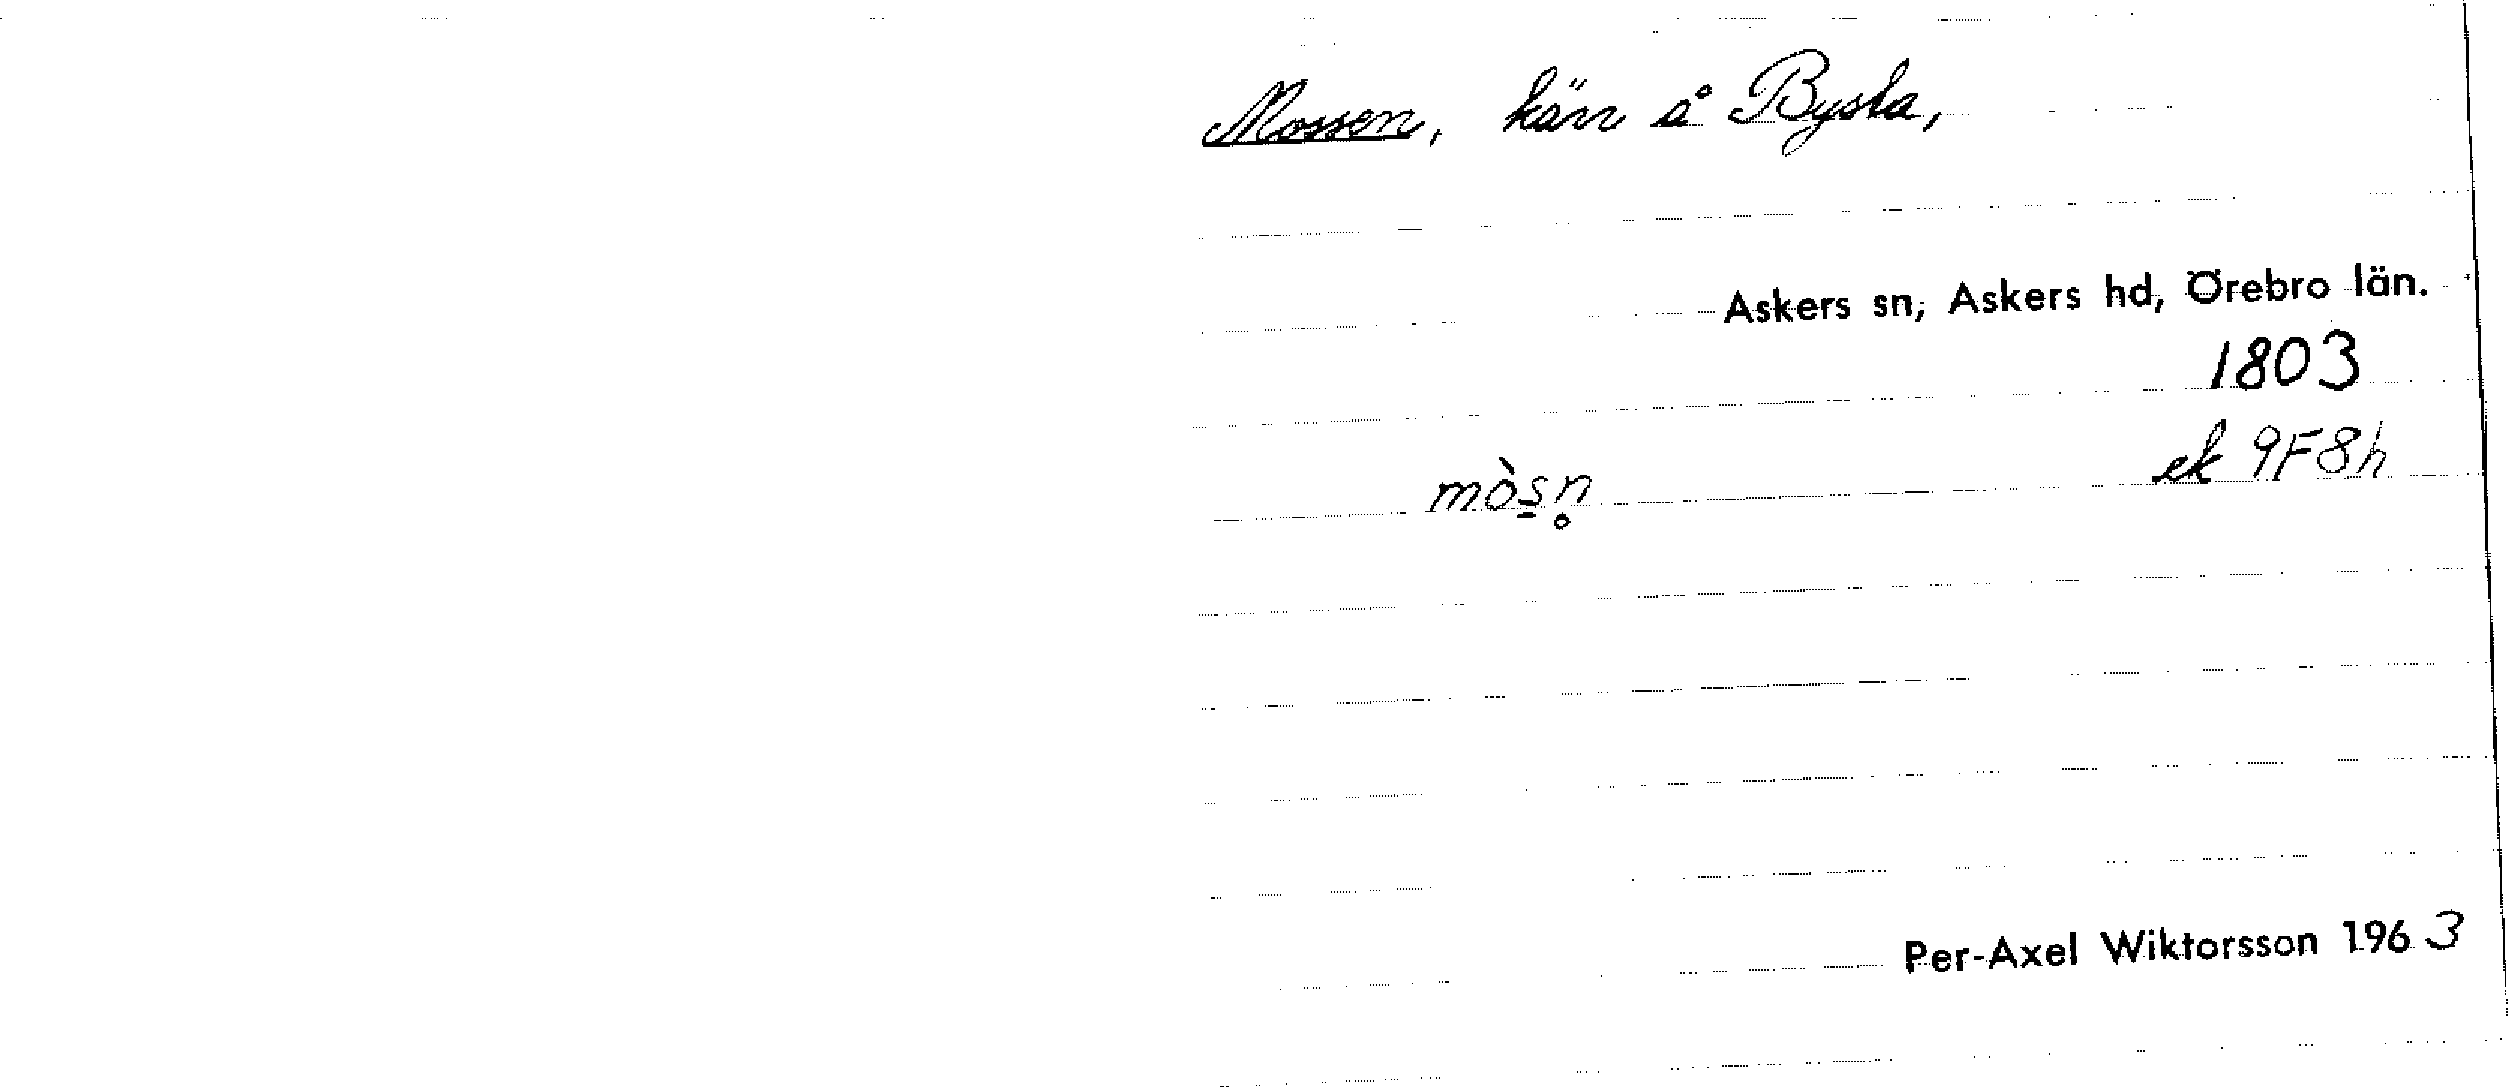 Mossen, kärr å Bysta,
Askers sn, Askers hd, Örebro län.
1803
ek 9F8h
mòs̱n̥
Per-Axel Wiktorsson 1963